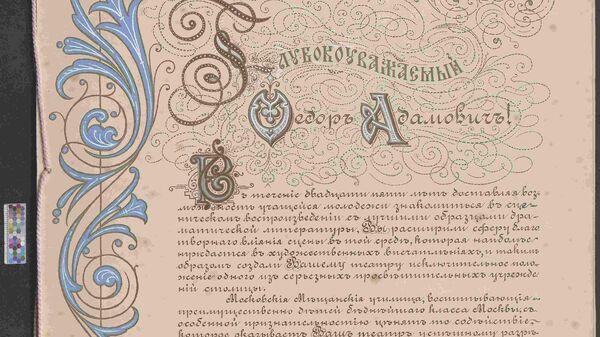 Глубокоуважаемый
Ѳедоръ Адамовичъ!
Въ теченіе двадцати пяти лѣтъ доставляя воз-
можность учащейся молодежи знакомиться въ сце-
ническомъ воспроизведеніи съ лучшими образцами дра-
матической литературы, Вы расширили сферу благо
творнаго вліянія сцены въ той средѣ, которая наиболѣе
нуждается въ художественныхъ впечатлѣніяхъ, и такимъ
образомъ создали Вашему театру исключительное поло-
женіе одного изъ серьезныхъ просвѣтительныхъ учрежде-
ній столицы.
Московскія Мѣщанскія училища, воспитывающія
преимущественно дѣтей бѣднѣйшаго класса Москвы, съ
особенной признательностью цѣнятъ то содѣйствіе,
которое оказываетъ Вашъ театръ успѣшному разрѣ-